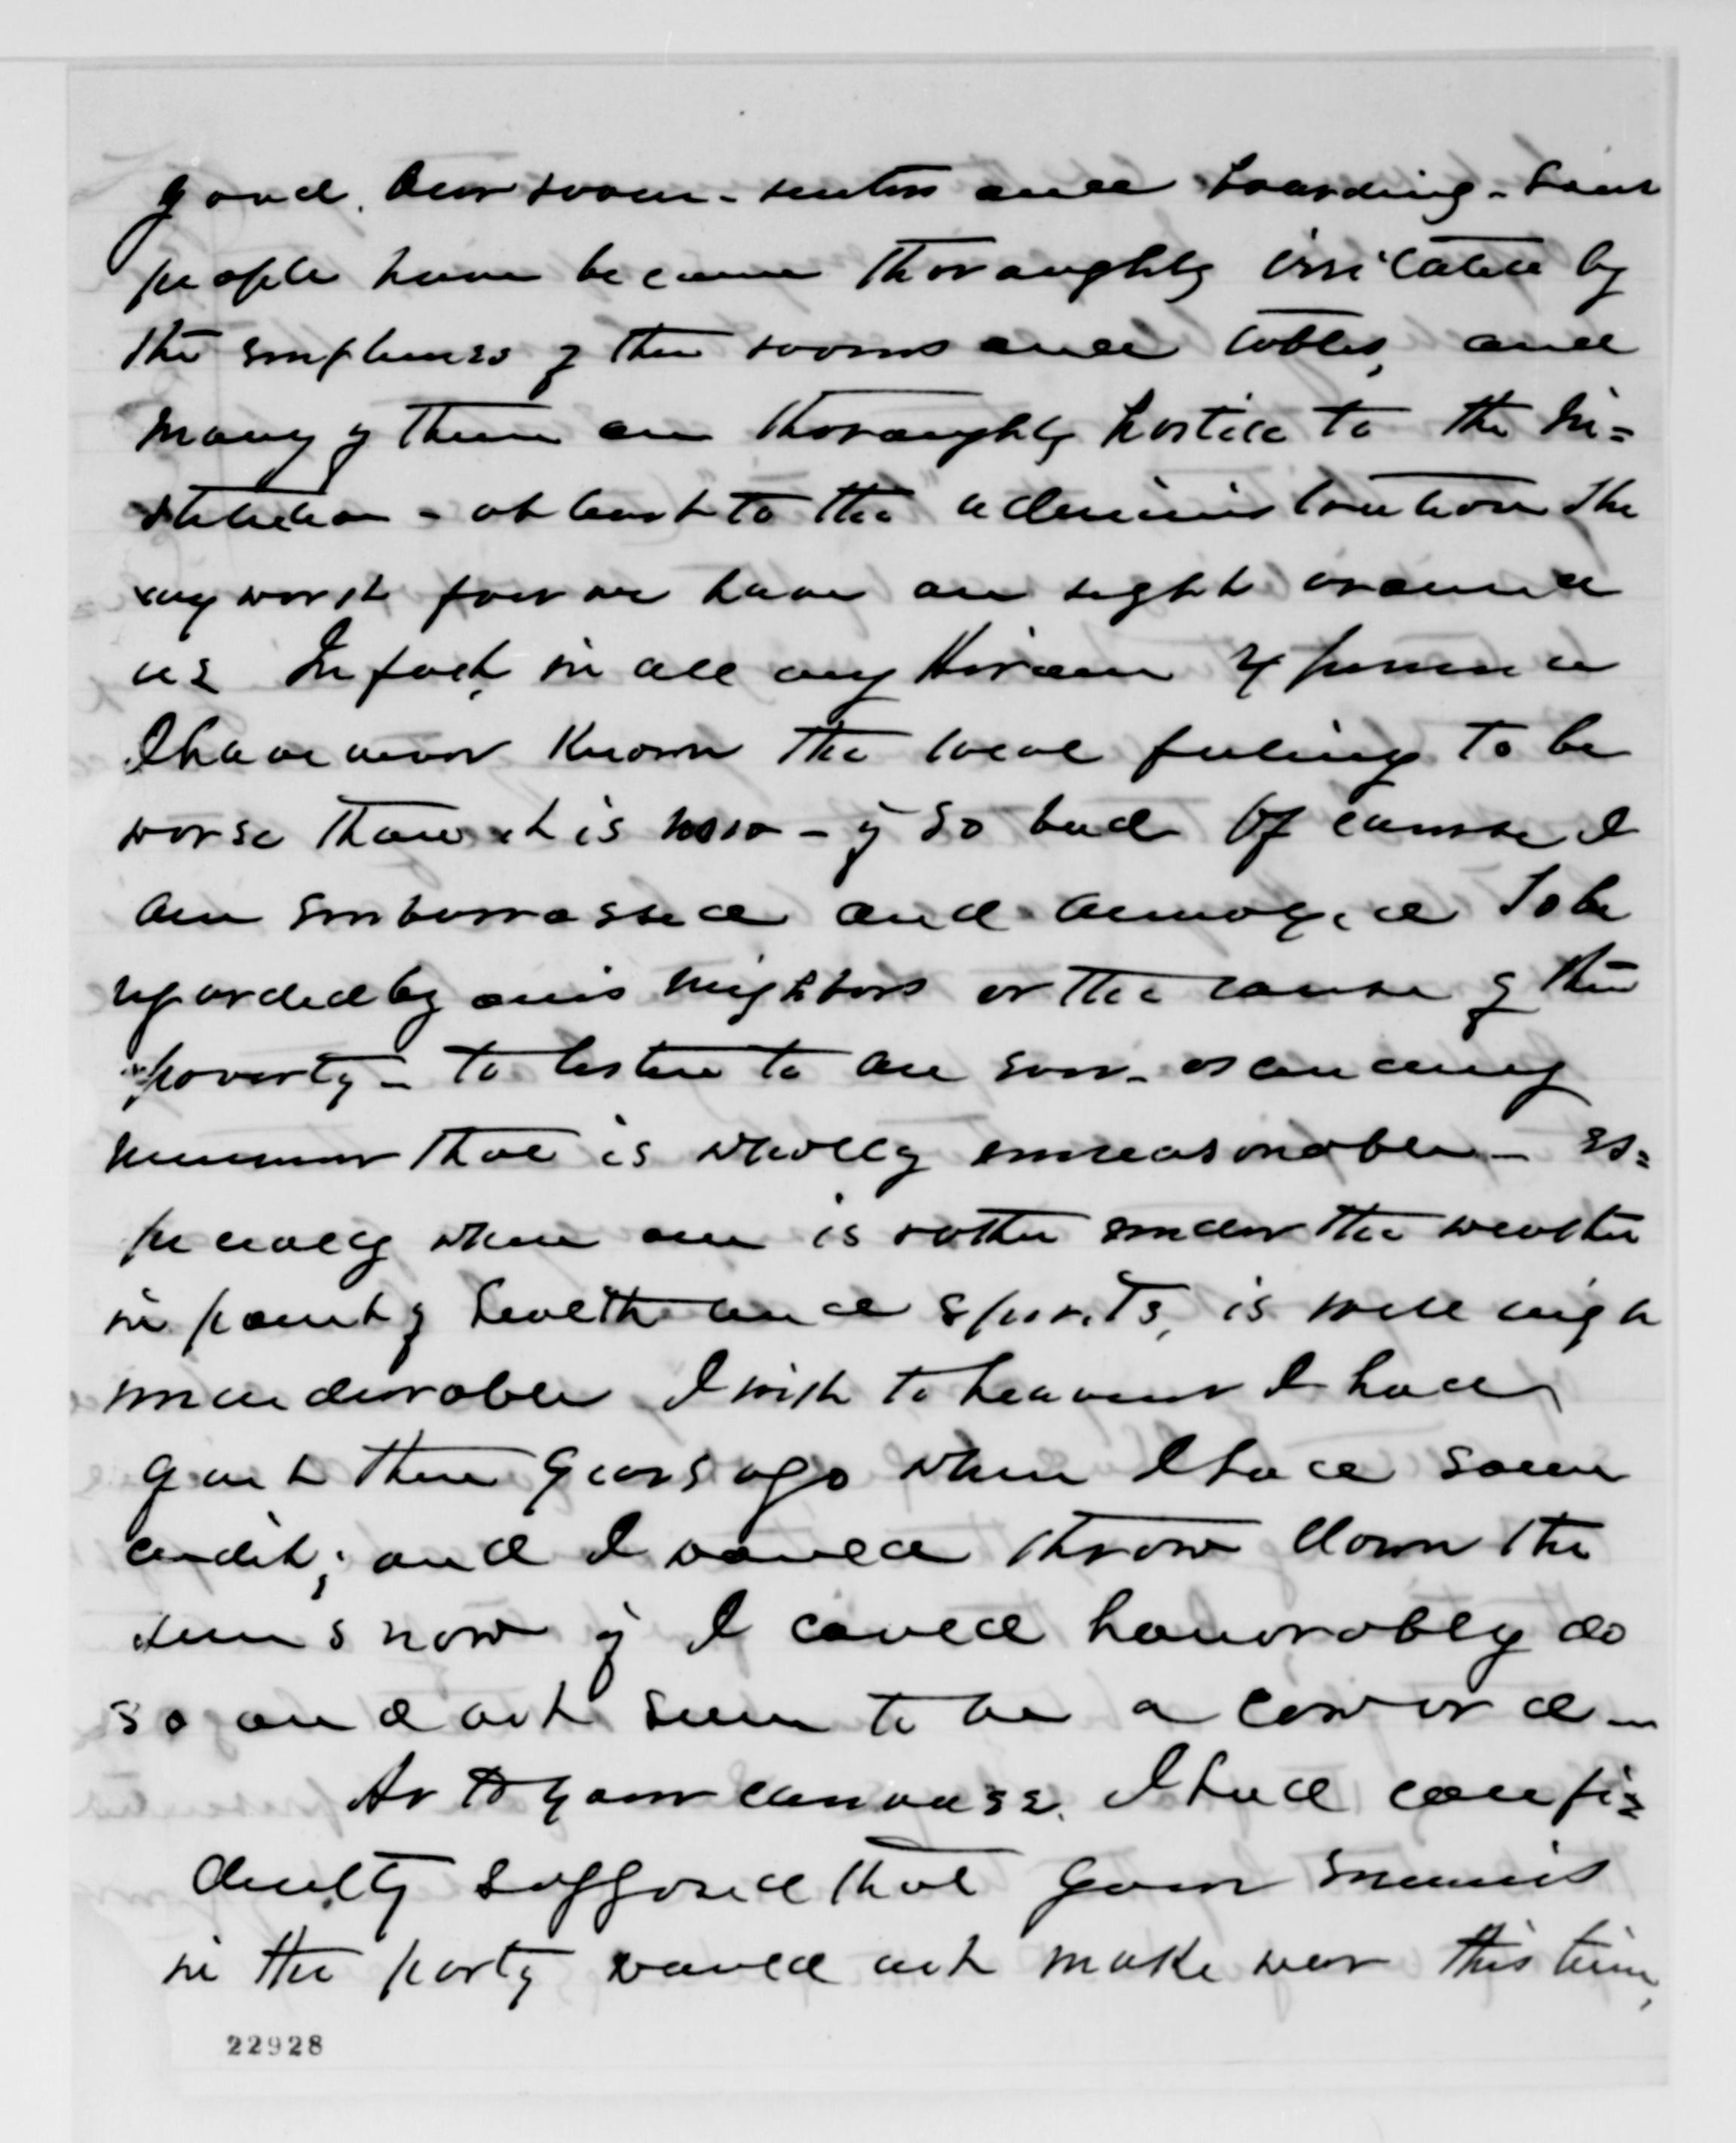 good. Our room-renters and boarding-house
people have become thoroughly irritated by
the emptiness of their rooms and tables, and
many of them are thoroughly hostile to the In=
stitution - at least to the administration The
very worst foes we have are right around
us In fact, in all my Hiram experience
I have never known the local feeling to be
worse than it is now - if so bad Of course I
am embarrassed and annoyed To be
regarded by ones neighbors as the cause of their
poverty - to listen to an ever-
murmur that is wholly unreasonable - es=
pecially when one is rather under the weather
in point of health and spirits, is well nigh
unendurable I wish to heavens I had
quit three years ago when I had some
credit; and I would throw down the
reins now if I could honorably do
so and not seem to be a coward -
As to your canvass. I had confi=
dently supposed that your enemies
in the party would not make war this time,
22928